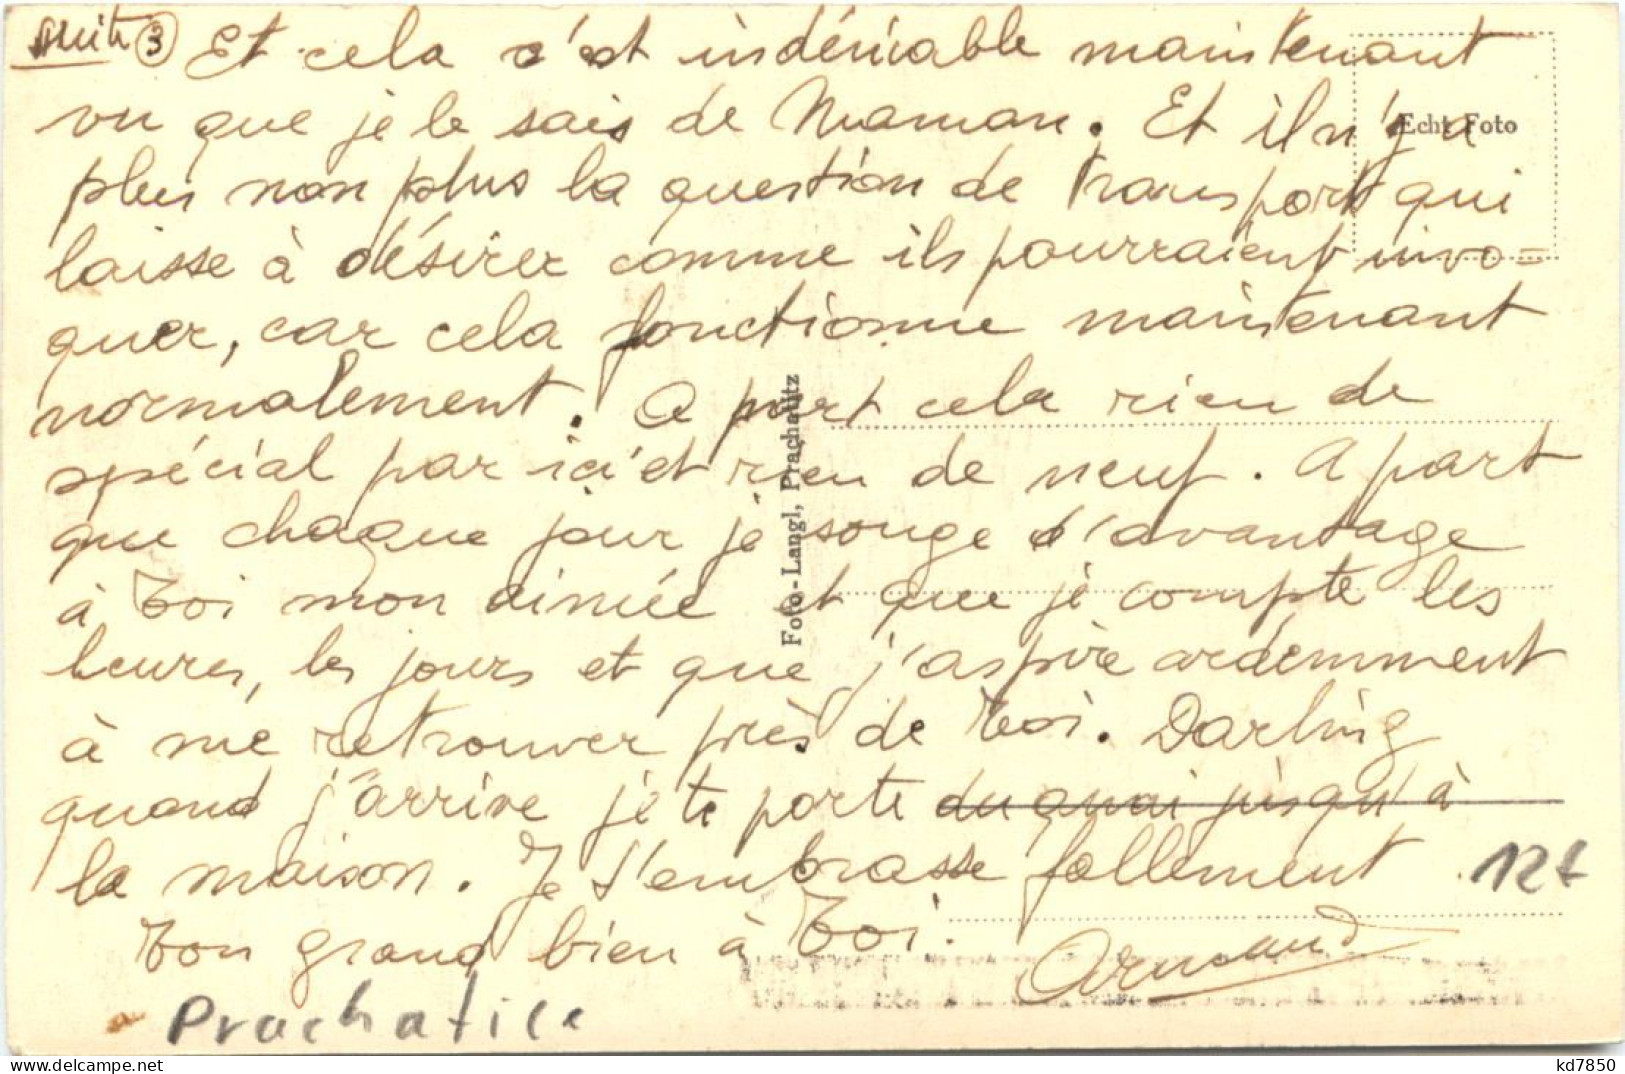 suite 3 Et cela c'est indéniable maintenant
vu que je le sais de Maman. Et il n'y a
Echt Foto
plus non plus la question de transport qui
laisse à désirer comme ils pourraient invo=
quer, car cela fonctionne maintenant
normalement. A part cela rien de
spécial par ici et rien de neuf. A part
que chaque jour je songe d'avantage
à Toi mon aimée et que je compte les
heures, les jours et que j'aspire ardemment
à me retrouver près de Toi. Darling
quand j'arrive je te porte du quai jusqu'à
la maison. Je t'embrasse follement
12f
Ton grand bien à Toi.
Armand
Prachatice
Foto-Langl, Prachatitz
kd7850